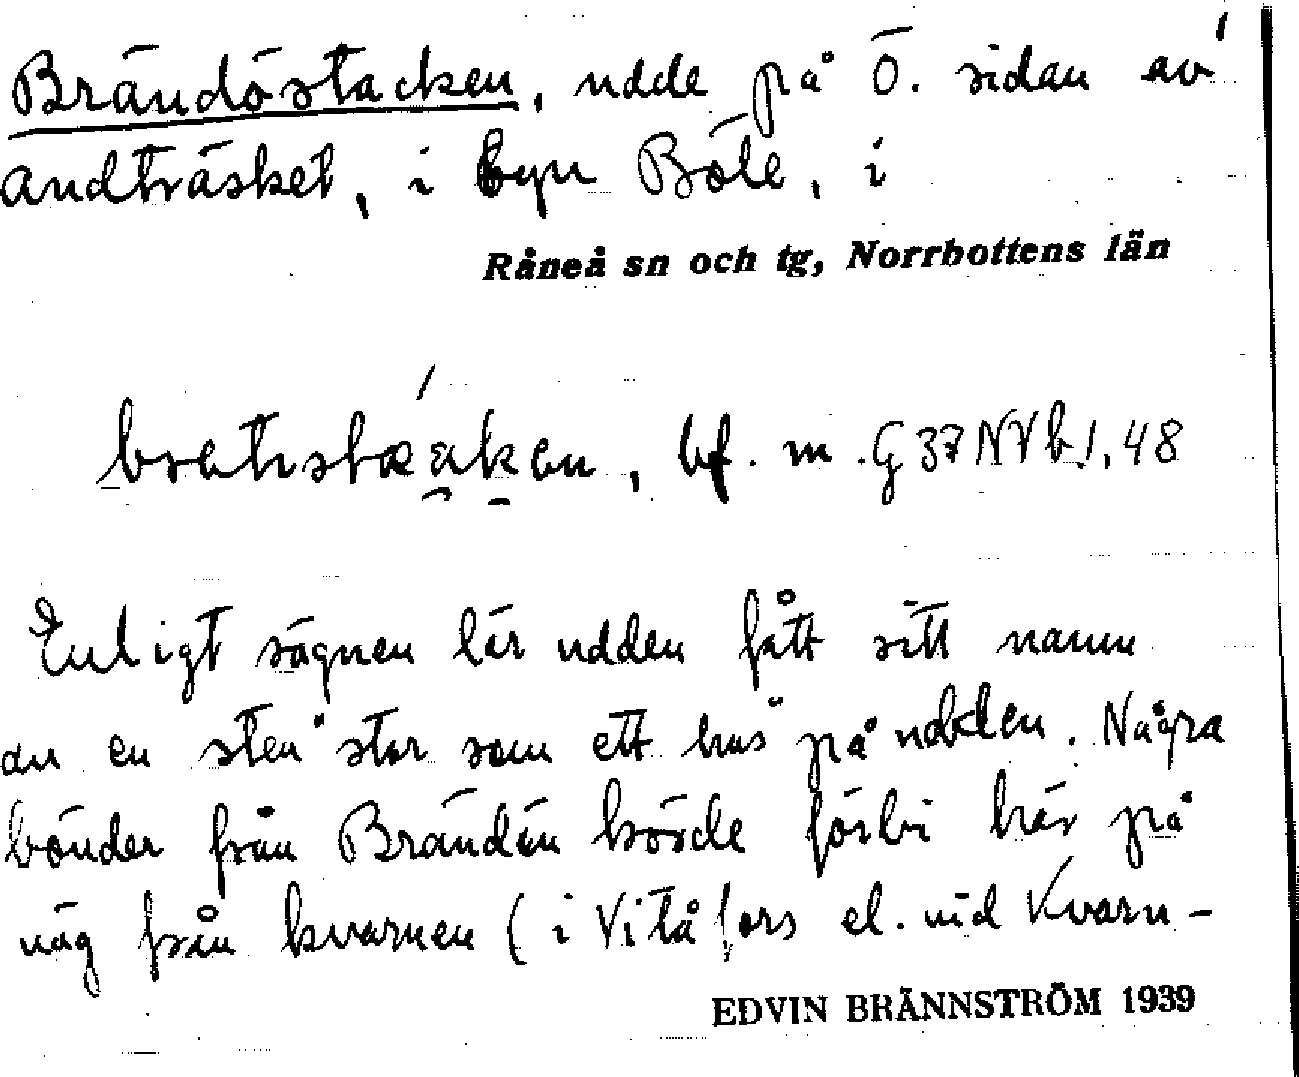 Brändöstacken, udde på Ö. sidan av
andträsket, i byn Böle, i
Råneå sn och tg, Norrbottens län
bf. m. G 37 NVb 1,48
Enligt sägnen lär udden fått sitt namn
av en sten "stor som ett hus" på udden. Några
bönder från Brändön körde förbi här på
väg från kvarnen (i Vitåfors el. vid Kvarn-
EDVIN BRÄNNSTRÖM 1939